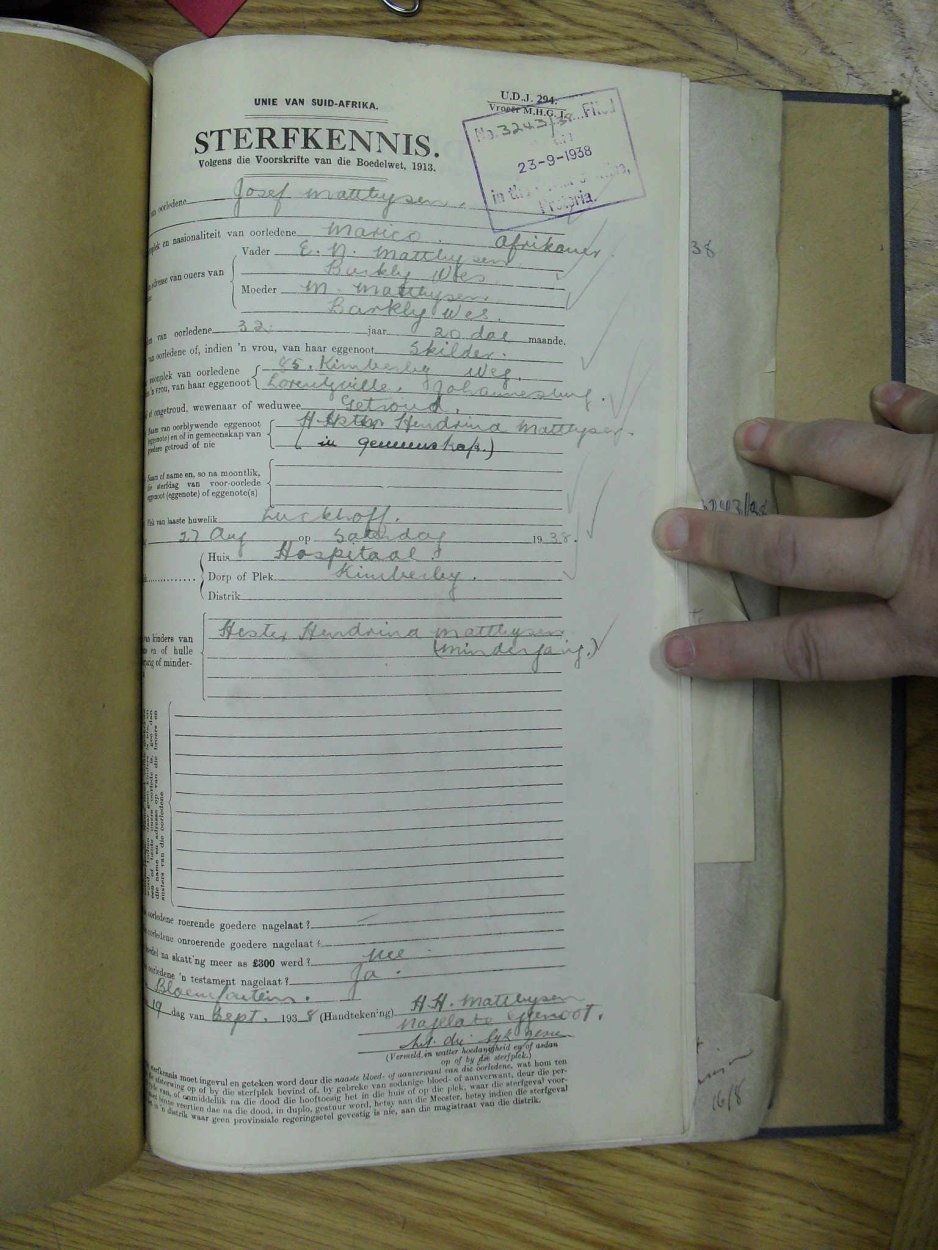 UNIE VAN SUID-AFRIKA.
U.D.J. 294.
Vroeër M.H.G. I.
No. 3243/38 Filed
23-9-1938
in the
Pretoria.
STERFKENNIS.
Volgens die Voorskrifte van die Boedelwet, 1913.
van oorledene Josef Matthysen.
en nasionaliteit van oorledene Marico. Afrikaner
Vader E. N. Matthysen
Barkly Wes
adresse van ouers van
Moeder M. Matthysen
Barkly Wes.
van oorledene 32 jaar 20 dae maande.
van oorledene of, indien 'n vrou, van haar eggenoot Skilder.
woonplek van oorledene 85, Kimberley Weg,
'n vrou, van haar eggenoot Lorentzville. Johannesburg.
of ongetroud, wewenaar of weduwee Getroud.
Naam van oorblywende eggenoot Hester Hendrina Matthysen.
(eggenote) en of in gemeenskap van (in gemeenskap.)
goedere getroud of nie
Naam of name en, so na moontlik,
die sterfdag van voor-oorlede
eggenoot (eggenote) of eggenote(s)
Plek van laaste huwelik Luckhoff.
27 Aug op Saterdag 1938.
Huis Hospitaal
Dorp of Plek Kimberley.
Distrik
Hester Hendrina Matthysen
van kinders van
(minderjarig.)
en of hulle
of minder-
oorledene roerende goedere nagelaat?
oorledene onroerende goedere nagelaat?
na skatt'ng meer as £300 werd? Nee
oorledene 'n testament nagelaat? Ja.
Bloemfontein.
19 dag van Sept. 1938 (Handteken'ng) H.H. Matthysen
Nagelate Eggenoot.
(Vermeld in watter hoedanigheid en of aldan
op of by die sterfplek.)
sterfkennis moet ingevul en geteken word deur die naaste bloed- of aanverwant van die oorledene, wat hom ten
op of by die sterfplek bevind of, by gebreke van sodanige bloed- of aanverwant, deur die per-
van, of onmiddellik na die dood die hooftoesig het in die huis of op die plek, waar die sterfgeval voor-
veertien dae na die dood, in duplo, gestuur word, hetsy aan die Meester, hetsy indien die sterfgeval
in 'n distrik waar geen provinsiale regeringsetel gevestig is nie, aan die magistraat van die distrik.
38
3243/38
16/8